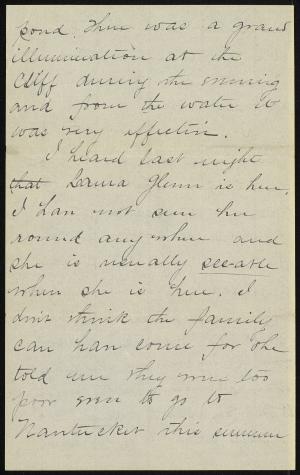 pond. There was a grand
illumination at the
Cliff during the evening
and from the water it
was very effective.
I heard last night
that Laura Glenn is here.
I have not seen her
round any where and
she is usually see-able
when she is here. I
don't think the family
can have come for she
told me they were too
poor even to go to
Nantucket this summer